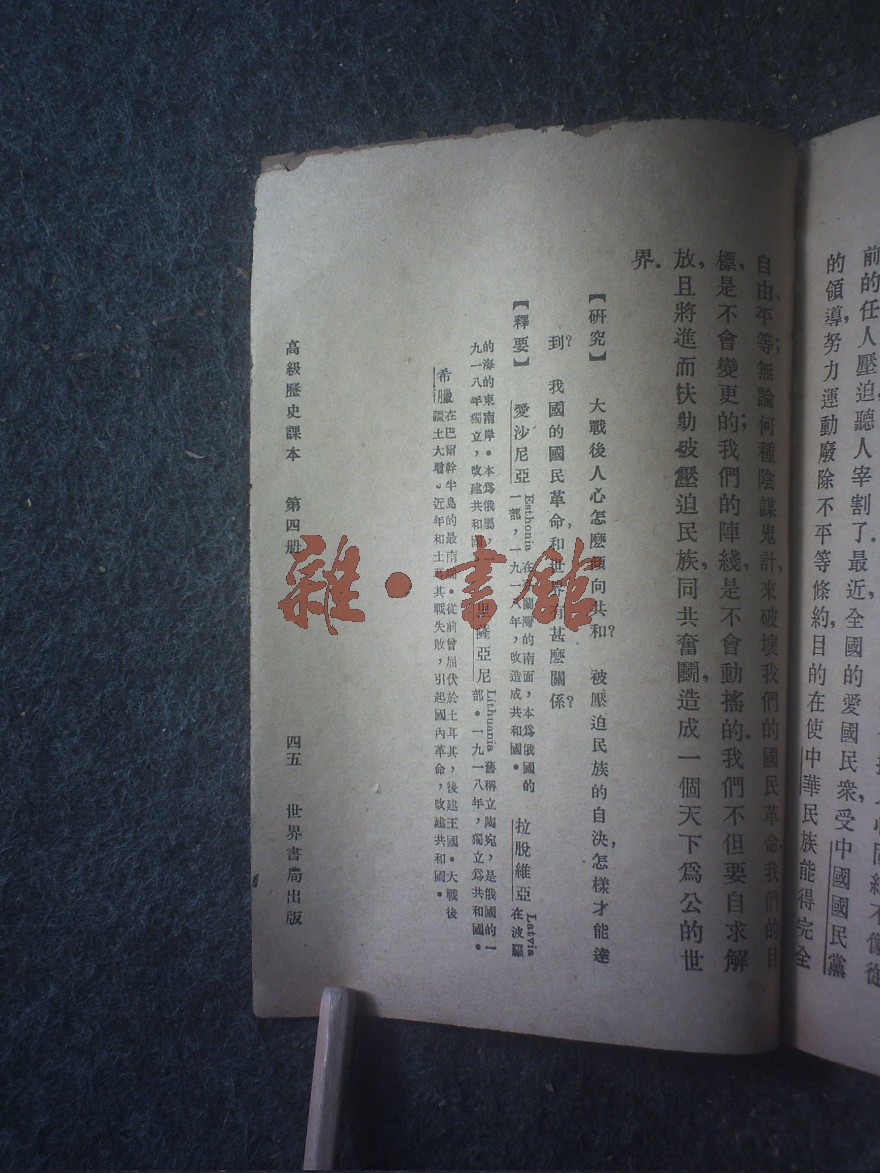 前的任人壓迫,聽人宰割了.最近,全國的愛國民衆,受中國國民黨
的領導,努力運動廢除不平等條約,目的在使中華民族能得完全
自由、平等;無論何種陰謀鬼計,來破壞我們的國民革命,我們的目
標,是不會變更的;我們的陣綫,是不會動搖的.我們不但要自求解
放,且將進而扶助被壓迫民族,同共奮鬭,造成一個天下爲公的世
界.
【研究】 大戰後人心怎麽傾向共和? 被壓迫民族的自決,怎樣才能達
到? 我國的國民革命,和世界有甚麽關係?
【釋要】 愛沙尼亞 Esthonia 在芬蘭灣的南面,本爲俄國的一部,一九一八年,改造成共和國。 拉脫維亞 Latvia 在波羅
的海的東南岸。本爲俄屬,一九一八年獨立,改建共和國 薩亞尼 Lithuania 舊稱立陶宛,是俄國的一部。一九一八年,獨立爲共和國。
希臘 在巴爾幹半島的最南 。從前曾屈伏於土耳其,後建王國。大戰後 土大增。近年和土耳其戰失敗,引起國內革命,改建共和國。
高級歷史課本 第四册 四五 世界書局出版
雜·書館